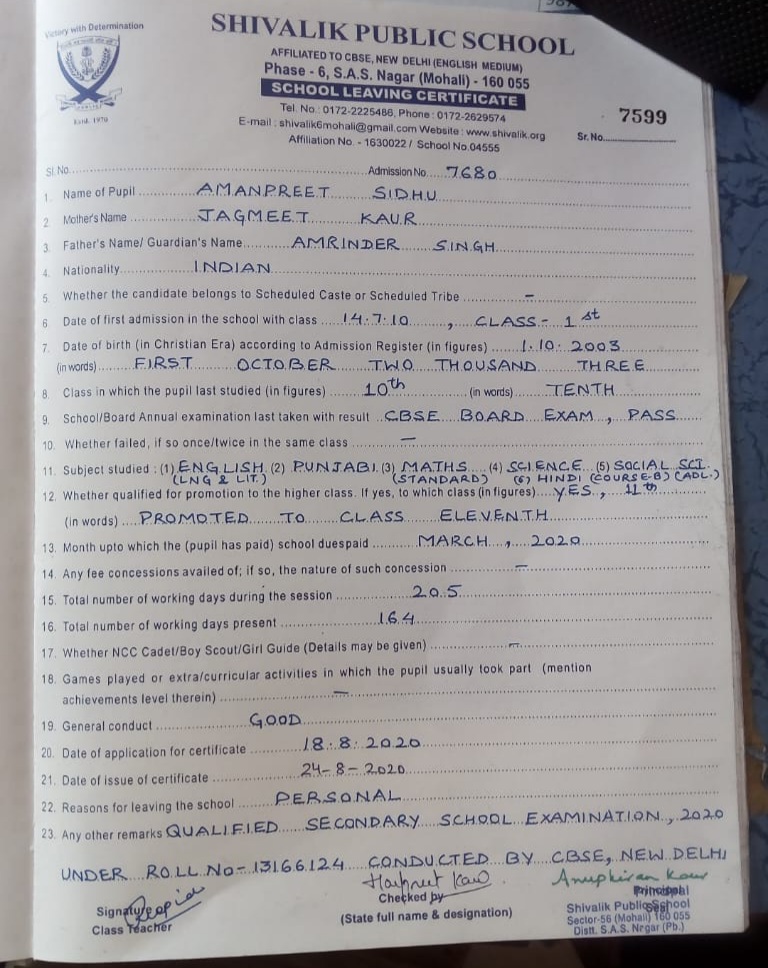 Victory with Determination
Estd. 1970
SHIVALIK PUBLIC SCHOOL
AFFILIATED TO CBSE, NEW DELHI (ENGLISH MEDIUM)
Phase - 6, S.A.S. Nagar (Mohali) - 160 055
SCHOOL LEAVING CERTIFICATE
Tel. No.: 0172-2225486, Phone : 0172-2629574
E-mail : shivalik6mohali@gmail.com Website : www.shivalik.org
Affiliation No. - 1630022 / School No.04555
Sr. No. 7599
Sl. No. Admission No. 7680
1. Name of Pupil AMANPREET SIDHU
2. Mother's Name JAGMEET KAUR
3. Father's Name/ Guardian's Name AMRINDER SINGH
4. Nationality INDIAN
5. Whether the candidate belongs to Scheduled Caste or Scheduled Tribe –
6. Date of first admission in the school with class 14.7.10, CLASS - 1st
7. Date of birth (in Christian Era) according to Admission Register (in figures) 1.10.2003
(in words) FIRST OCTOBER TWO THOUSAND THREE
8. Class in which the pupil last studied (in figures) 10th (in words) TENTH
9. School/Board Annual examination last taken with result CBSE BOARD EXAM, PASS
10. Whether failed, if so once/twice in the same class –
11. Subject studied : (1) ENGLISH (2) PUNJABI (3) MATHS (4) SCIENCE (5) SOCIAL SCI.
(LNG & LIT.) (STANDARD) (6) HINDI (COURSE-B) (ADL.)
12. Whether qualified for promotion to the higher class. If yes, to which class (in figures) YES, 11th
(in words) PROMOTED TO CLASS ELEVENTH
13. Month upto which the (pupil has paid) school duespaid MARCH, 2020
14. Any fee concessions availed of; if so, the nature of such concession –
15. Total number of working days during the session 205
16. Total number of working days present 164
17. Whether NCC Cadet/Boy Scout/Girl Guide (Details may be given) –
18. Games played or extra/curricular activities in which the pupil usually took part (mention
achievements level therein) –
19. General conduct GOOD
20. Date of application for certificate 18.8.2020
21. Date of issue of certificate 24-8-2020
22. Reasons for leaving the school PERSONAL
23. Any other remarks QUALIFIED SECONDARY SCHOOL EXAMINATION, 2020
UNDER ROLL No-13166124 CONDUCTED BY CBSE, NEW DELHI
Harpreet Kaur Anupkiran Kaur
Signature Checked by Principal
Class Teacher (State full name & designation) Seal
Shivalik Public School
Sector-56 (Mohali) 160 055
Distt. S.A.S. Nagar (Pb.)